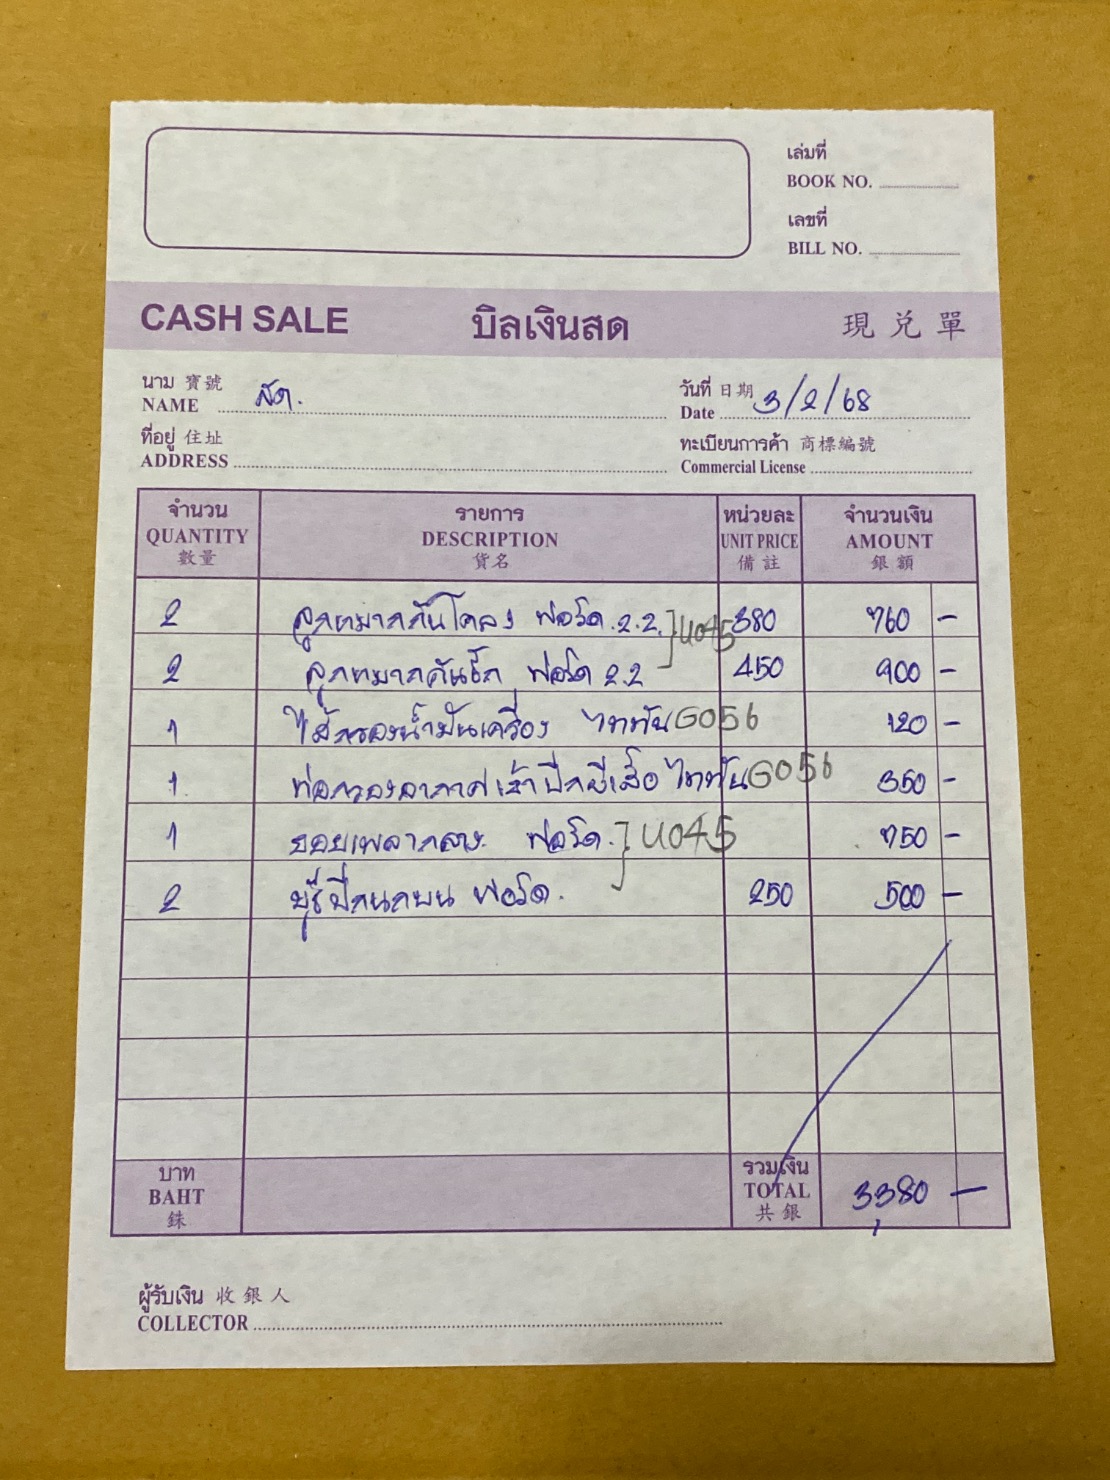 เล่มที่
BOOK NO.
เลขที่
BILL NO.
CASH SALE บิลเงินสด 現兌單
นาม 寶號
NAME สด.
วันที่ 日期
Date 3/2/68
ที่อยู่ 住址
ADDRESS
ทะเบียนการค้า 商標編號
Commercial License
จำนวน รายการ หน่วยละ จำนวนเงิน
QUANTITY DESCRIPTION UNIT PRICE AMOUNT
數量 貨名 備註 銀額
2 ลูกหมากกันโคลง ฟอร์ด.2.2. U045 380 760 -
2 ลูกหมากคันชัก ฟอร์ด 2.2 450 900 -
1 ไส้กรองน้ำมันเครื่อง ไททัน G056 120 -
1 ท่อกรองอากาศเข้าปีกผีเสื้อ ไททัน G056 350 -
1 ยอยเพลากลาง. ฟอร์ด. U045 750 -
2 บู๊ชปีกนกบน ฟอร์ด. 250 500 -
บาท รวมเงิน
BAHT TOTAL 3,380 -
銖 共銀
ผู้รับเงิน 收銀人
COLLECTOR